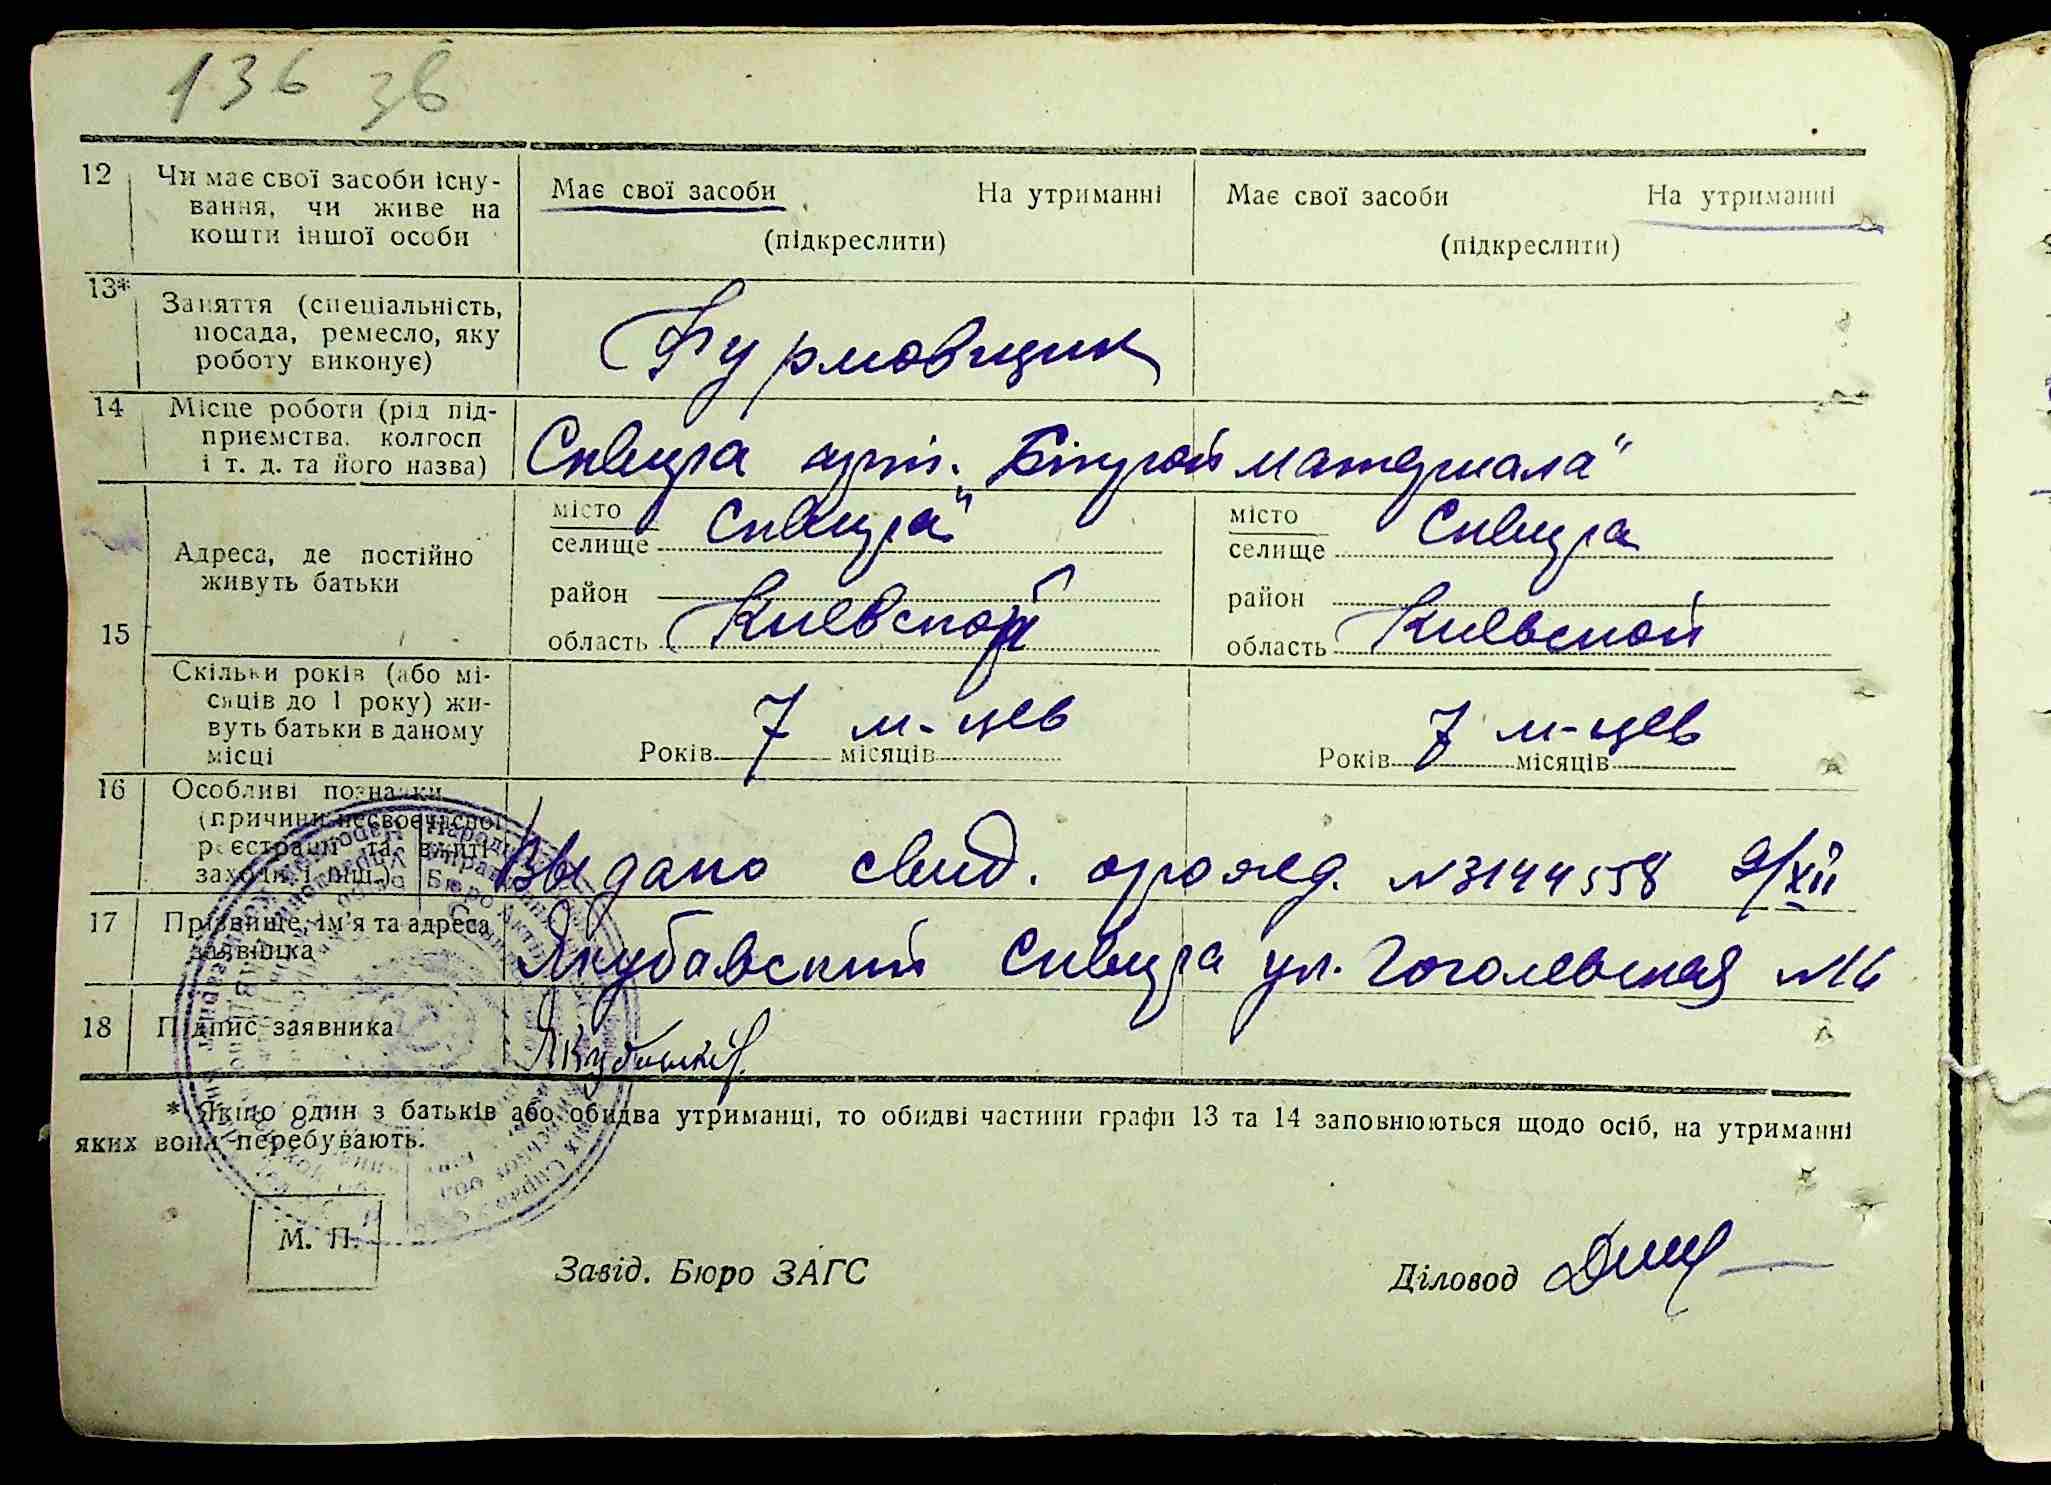 136 зв
12 Чи має свої засоби існу-
вання, чи живе на
кошти іншої особи
Має свої засоби На утриманні
(підкреслити)
Має свої засоби На утриманні
(підкреслити)
13* Заняття (спеціальність,
посада, ремесло, яку
роботу виконує)
Фурмовщик
14 Місце роботи (рід під-
приємства, колгосп
і т. д. та його назва)
Сквира арт. "Бітрой материала"
15 Адреса, де постійно
живуть батьки
місто
селище Сквира
район
область Киевской
місто
селище Сквира
район
область Киевской
Скільки років (або мі-
сяців до 1 року) жи-
вуть батьки в даному
місці
Років 7 місяців м-цев
Років 7 місяців м-цев
16 Особливі познаки
(причини несвоєчасної
реєстрації та вжиті
заходи і інш.)
Выдано свид. о рожд. №3144558 9/XII
17 Прізвище, ім'я та адреса
заявника
Якубавский Сквира ул. Гоголевская №16
18 Підпис заявника
* Якщо один з батьків або обидва утриманці, то обидві частини графи 13 та 14 заповнюються щодо осіб, на утриманні
яких вони перебувають.
М. П.
Завід. Бюро ЗАГС
Діловод